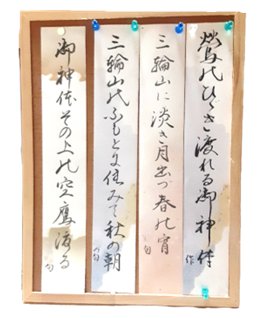 鶯のひゞき渡れる御神体 作
三輪山に淡き月出づ春の宵 句
三輪山のふもとに住みて秋の朝 句
御神体その上の空鷹渡る 句